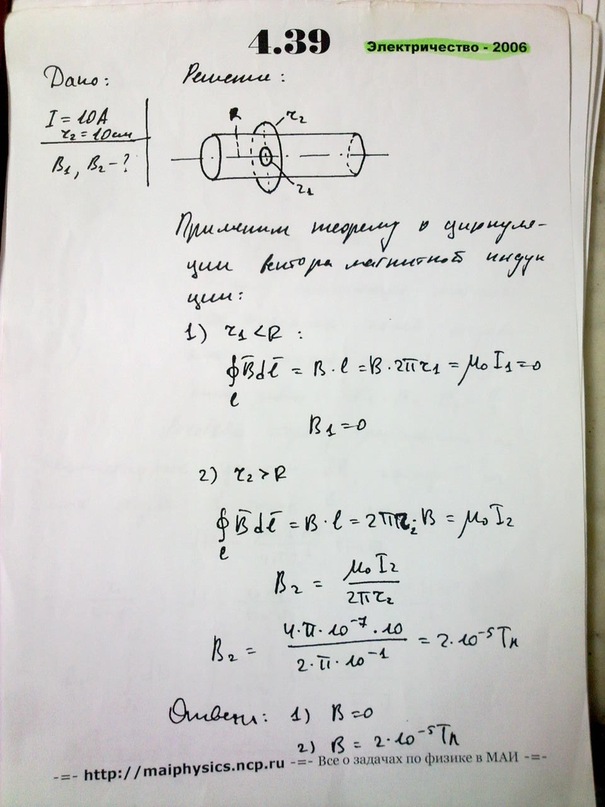 4.39
Электричество - 2006
Дано:
Решение:
I = 10A
r₂ = 10см
B₁, B₂ - ?
R
r₂
r₁
Применим теорему о циркуля-
ции вектора магнитной индук
ции:
1) r₁ < R :
∮ B̄dℓ̄ = B·ℓ = B·2πr₁ = μ₀I₁ = 0
ℓ
B₁ = 0
2) r₂ > R
∮ B̄dℓ̄ = B·ℓ = 2πr₂·B = μ₀I₂
ℓ
B₂ = μ₀I₂ / 2πr₂
B₂ = 4·π·10⁻⁷·10 / 2·π·10⁻¹ = 2·10⁻⁵ Тл
Ответ: 1) B = 0
2) B = 2·10⁻⁵ Тл
-=- http://maiphysics.ncp.ru -=- Все о задачах по физике в МАИ -=-